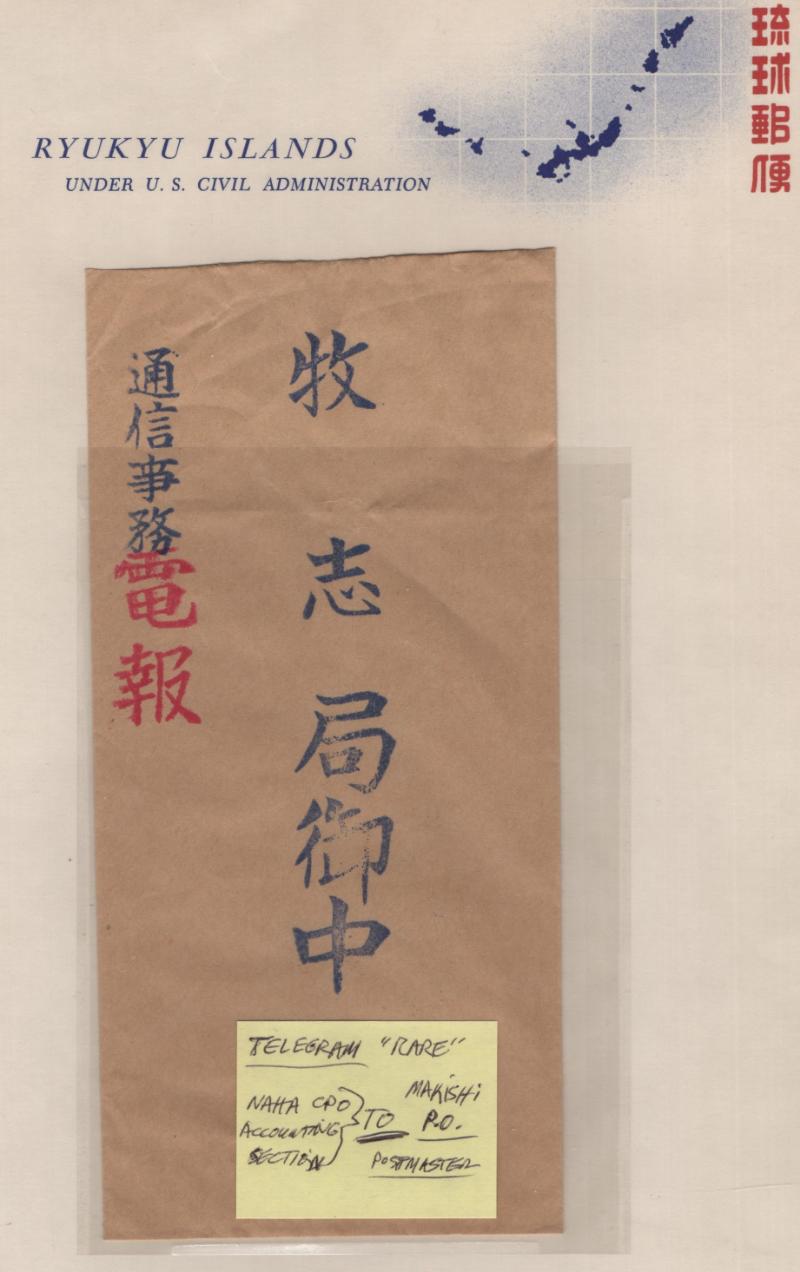 RYUKYU ISLANDS
UNDER U. S. CIVIL ADMINISTRATION
琉球郵便
牧志局御中
通信事務
電報
TELEGRAM "RARE"
NAHA CPO
ACCOUNTING
SECTION
TO
MAKISHI
P.O.
POSTMASTER